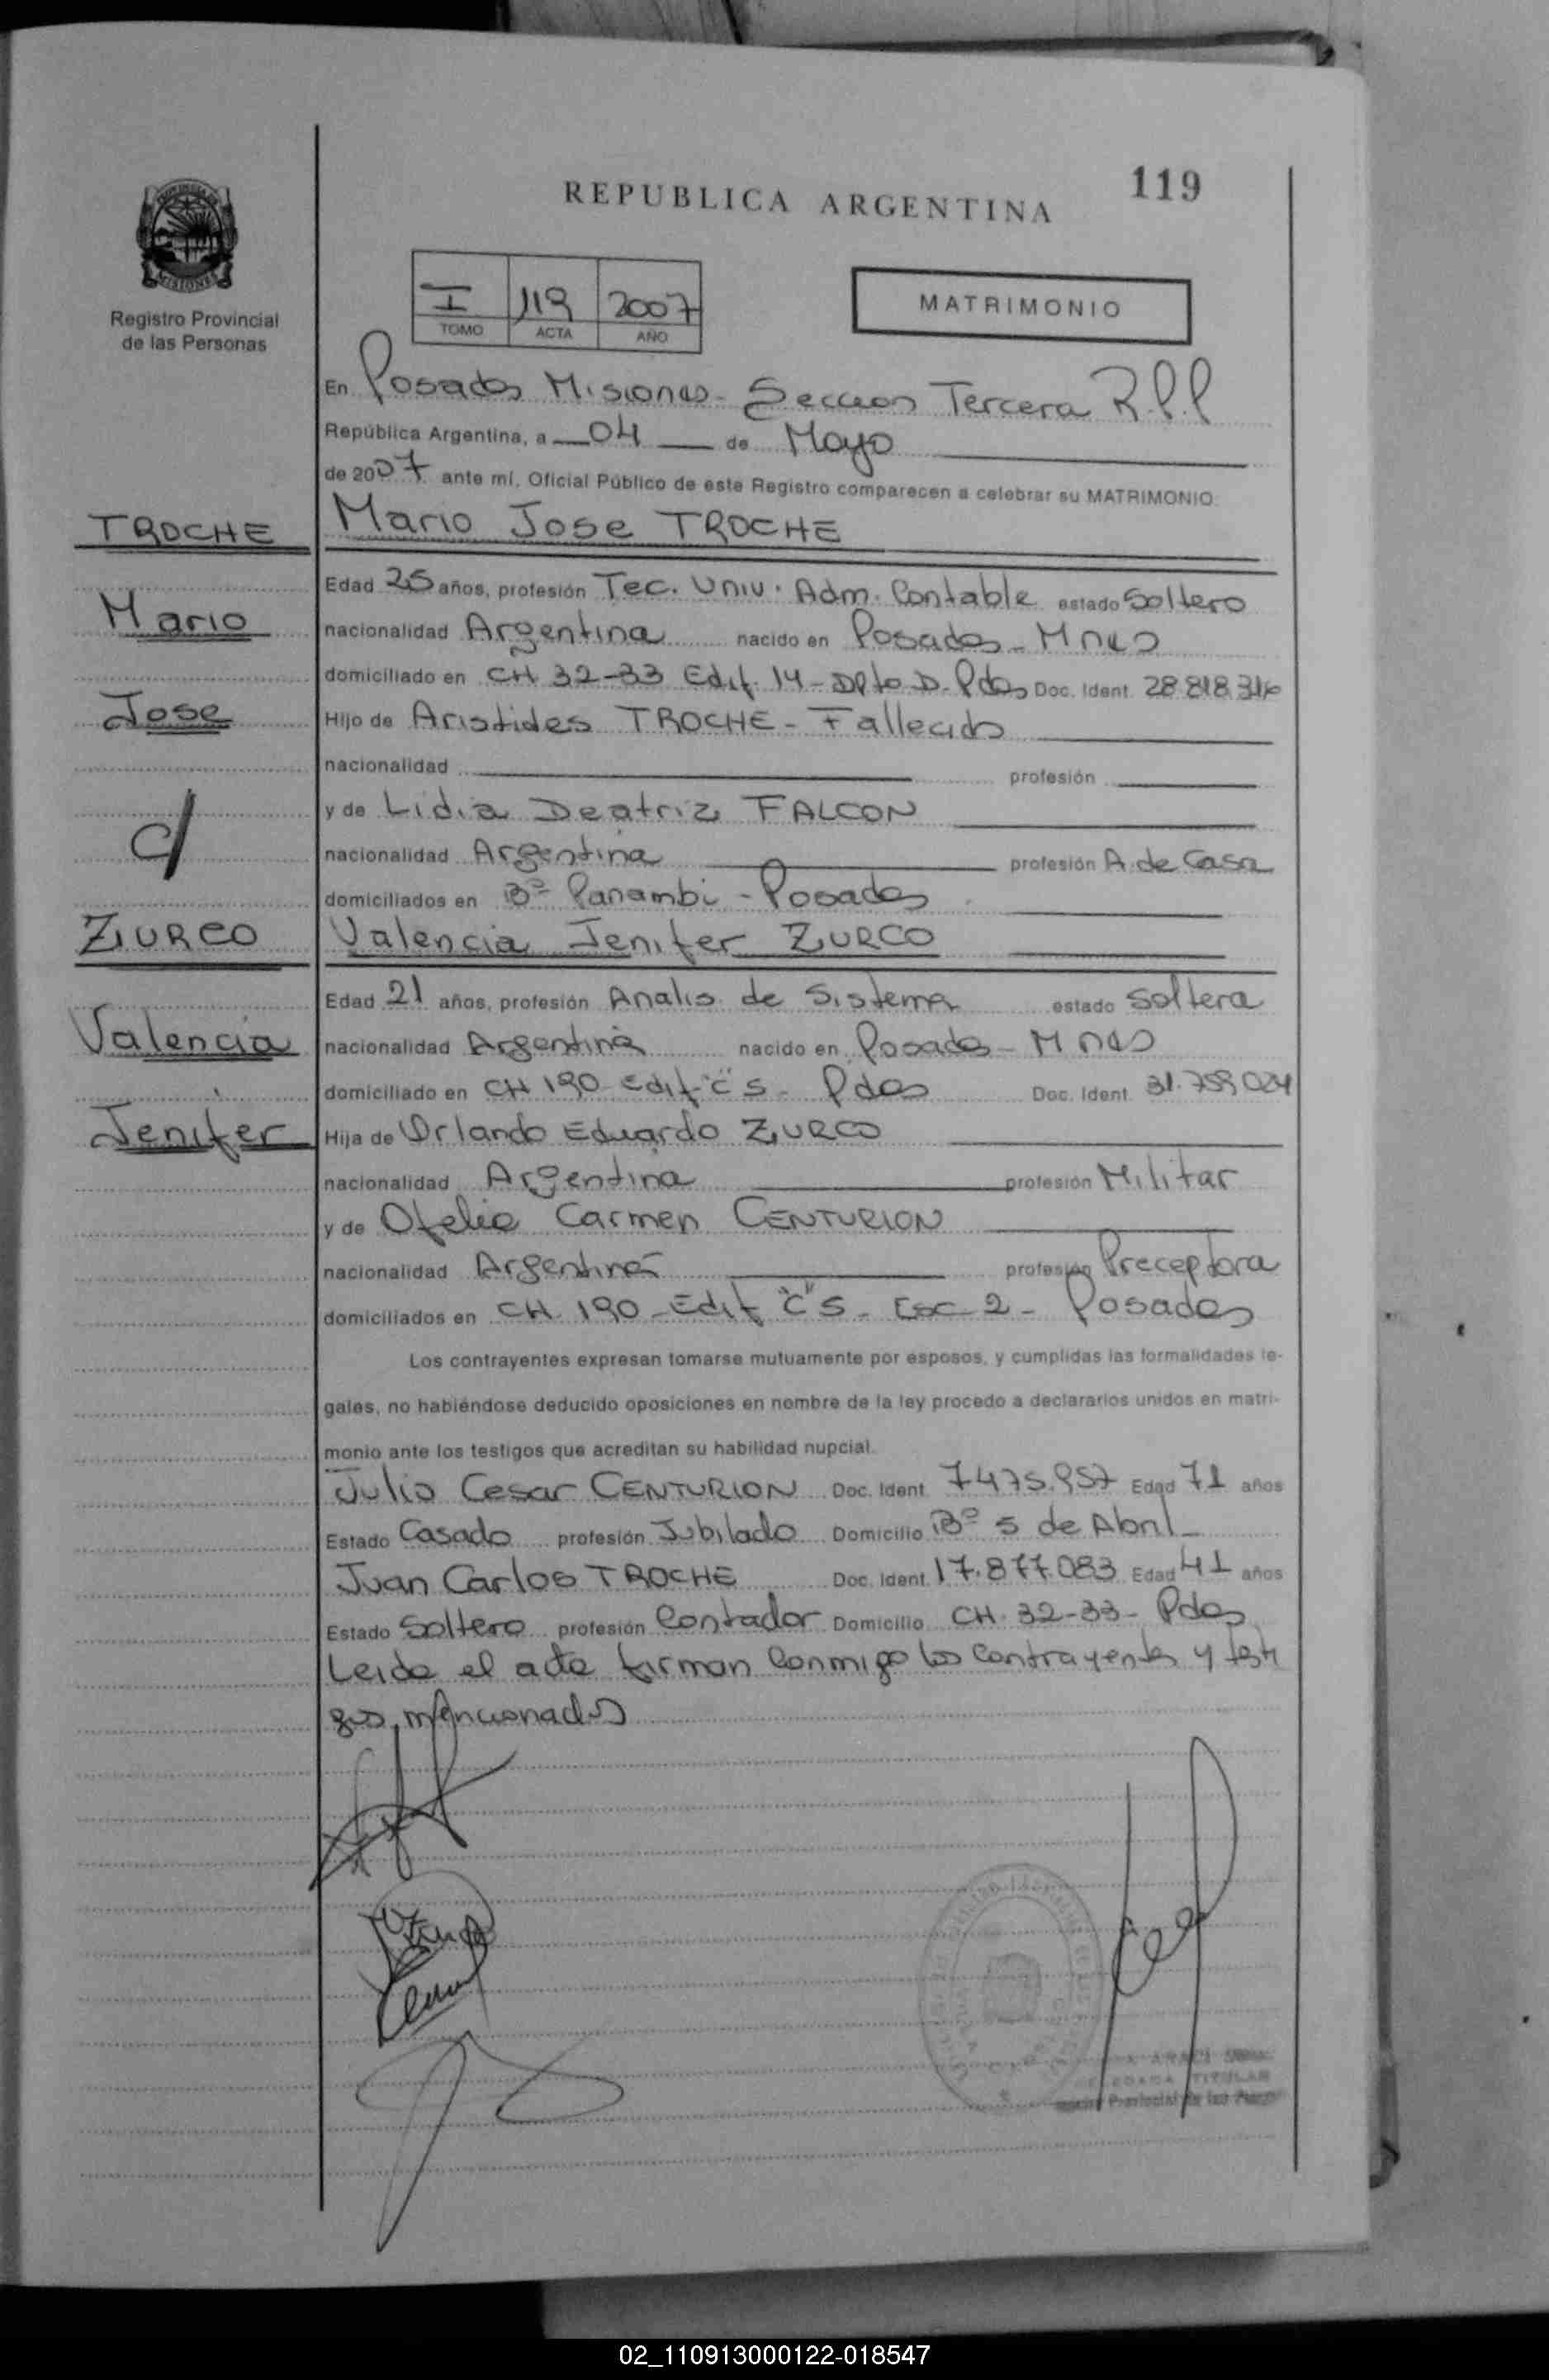 119
REPUBLICA ARGENTINA
Registro Provincial
de las Personas
I 119 2007
TOMO ACTA AÑO
MATRIMONIO
En Posadas Misiones - Seccion Tercera R.P.P
República Argentina, a 04 de Mayo
de 2007 ante mí, Oficial Público de este Registro comparecen a celebrar su MATRIMONIO:
TROCHE
Mario Jose TROCHE
Edad 25 años, profesión Tec. Univ. Adm. Contable estado Soltero
Mario
nacionalidad Argentina nacido en Posadas - Mnes
domiciliado en CH 32-33 Edif. 14 - Dpto D. Pdas Doc. Ident. 28.818.316
Jose
Hijo de Aristides TROCHE - Fallecido
nacionalidad profesión
y de Lidia Beatriz FALCON
c/
nacionalidad Argentina profesión A. de Casa
domiciliados en Bº Panambi - Posadas
ZURCO
Valencia Jenifer ZURCO
Edad 21 años, profesión Analis. de Sistema estado Soltera
Valencia
nacionalidad Argentina nacido en Posadas - Mnes
domiciliado en CH 190 - Edif "C" 5 - Pdas Doc. Ident. 31.759.024
Jenifer
Hija de Orlando Eduardo ZURCO
nacionalidad Argentina profesión Militar
y de Ofelia Carmen CENTURION
nacionalidad Argentina profesión Preceptora
domiciliados en CH. 190 - Edif "C" 5 - Esc 2 - Posadas
Los contrayentes expresan tomarse mutuamente por esposos, y cumplidas las formalidades le-
gales, no habiéndose deducido oposiciones en nombre de la ley procedo a declararlos unidos en matri-
monio ante los testigos que acreditan su habilidad nupcial.
Julio Cesar CENTURION Doc. Ident. 7475.957 Edad 71 años
Estado Casado profesión Jubilado Domicilio Bº 5 de Abril
Juan Carlos TROCHE Doc. Ident. 17.877.083 Edad 41 años
Estado Soltero profesión Contador Domicilio CH. 32-33 - Pdas
Leida el acta firman conmigo los contrayentes y testi
gos mencionados
TITULAR
Provincial de las
02_110913000122-018547